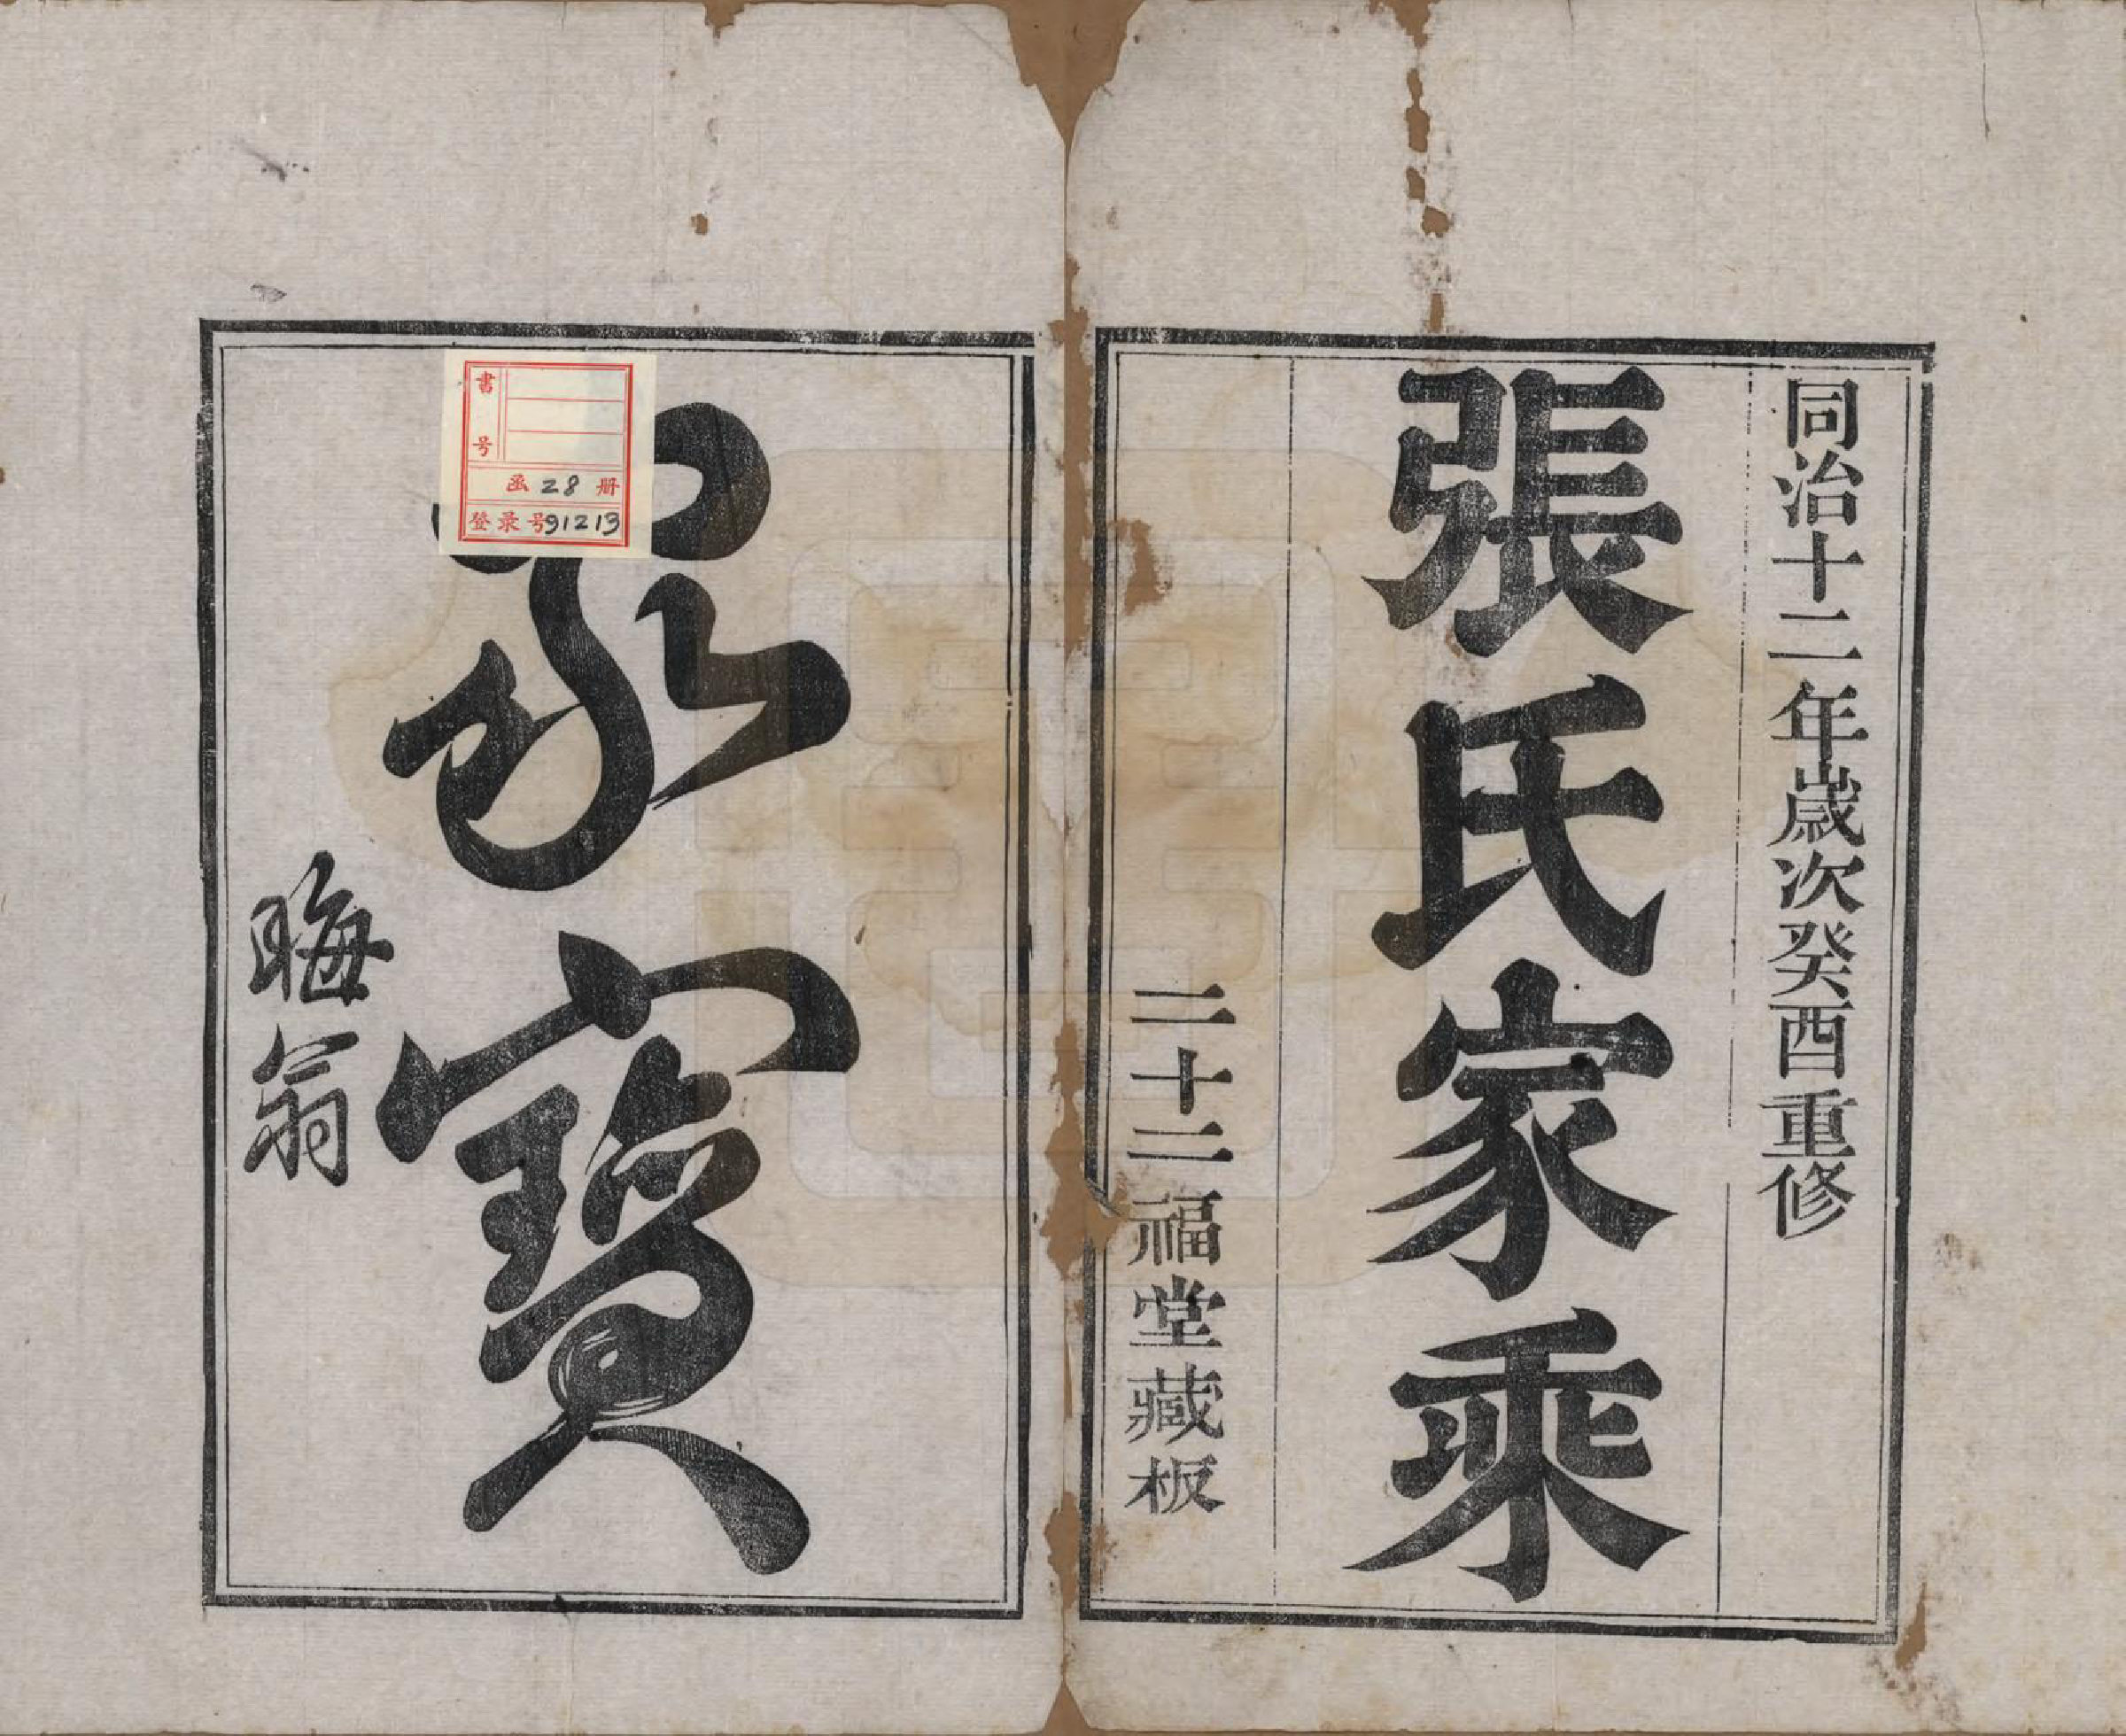 同治十二年歲次癸酉重修
張氏家乘
二十二福堂藏板
家寶
晦翁
書号
函 28 册
登录号91213